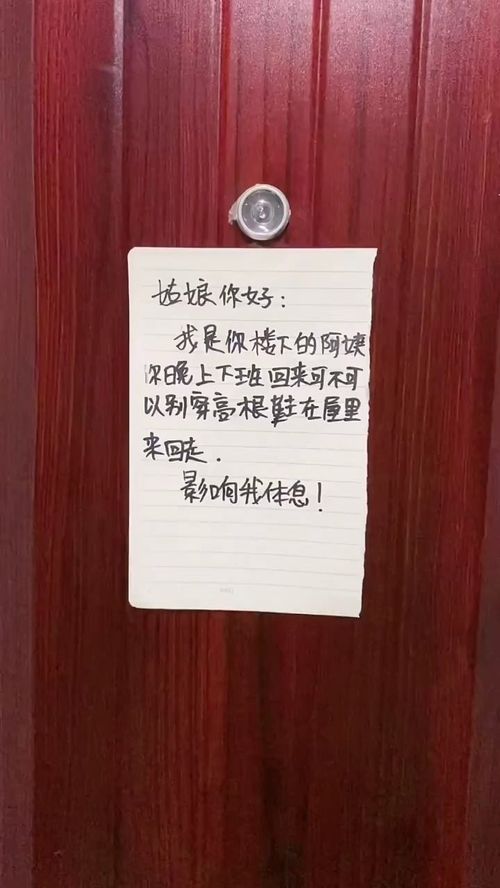 姑娘你好：
我是你楼下的阿姨
你晚上下班回来可不可
以别穿高根鞋在屋里
来回走.
影响我休息！